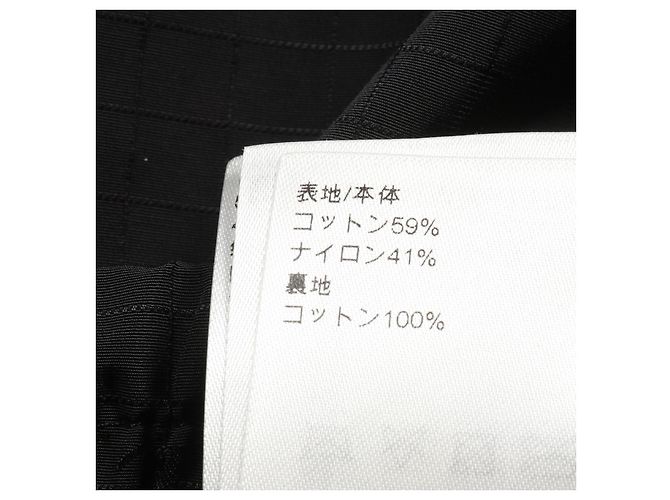 表地/本体
コットン59%
ナイロン41%
裏地
コットン100%